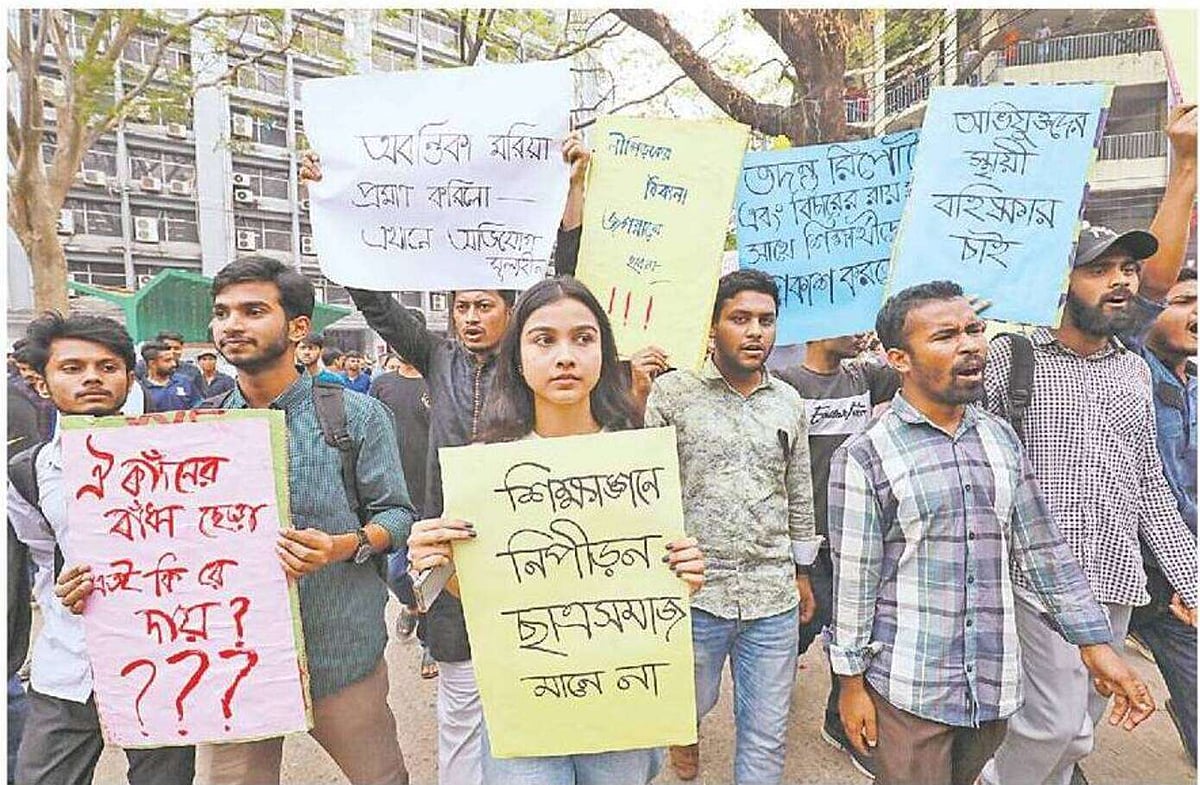 অবন্তিকা মরিয়া
প্রমাণ করিলো—
এখানে অভিযোগ
মূল্যহীন
নীপিড়কের
ঠিকানা
জগন্নাথে
হবেনা
!!!
তদন্ত রিপোর্ট
এবং বিচারের রায়
সাথে শিক্ষার্থীদের
প্রকাশ করতে
অভিযুক্তদের
স্থায়ী
বহিষ্কার
চাই
ঐ কাঁদনের
বাঁধন ছেড়া
এতই কি রে
দায়?
???
শিক্ষাঙ্গনে
নিপীড়ন
ছাত্রসমাজ
মানে না